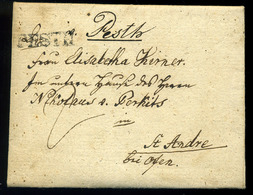 Pesth
PESTH
Frau Elisabetha Kerner.
im untern Hause des Herrn
Nikolaus v. Perkits
in
St Andre
bei Ofen.